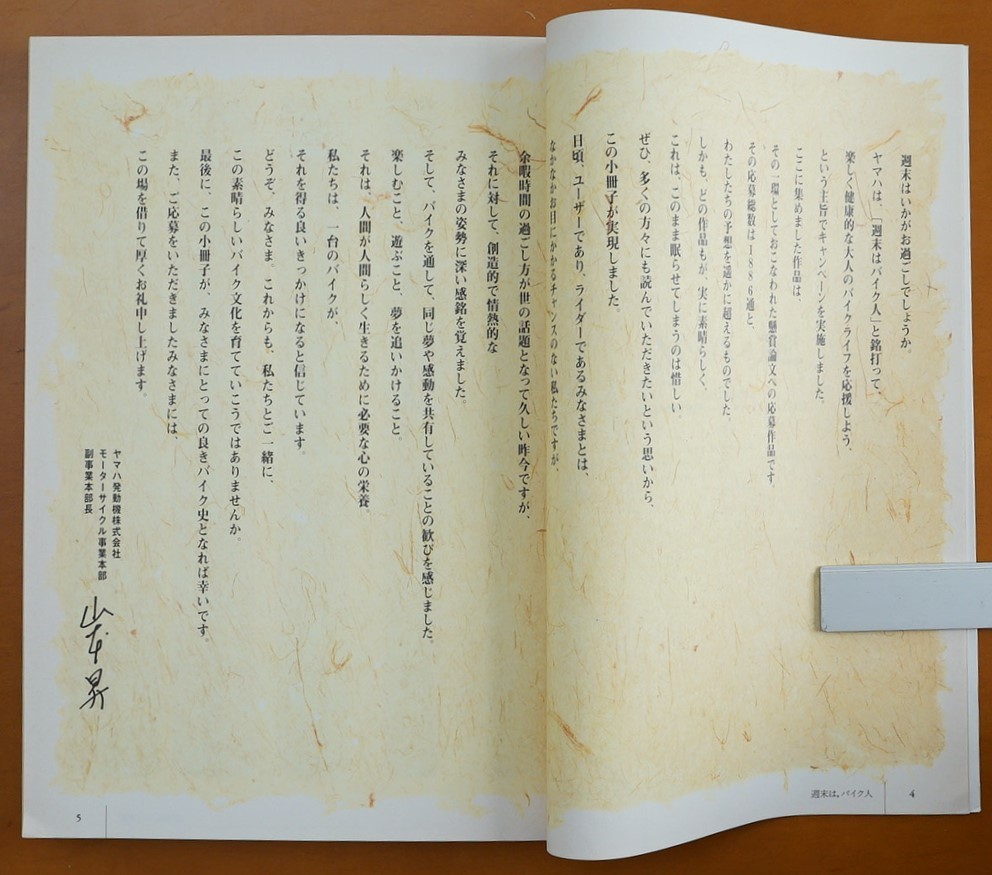 週末はいかがお過ごしでしょうか。
ヤマハは、「週末はバイク人」と銘打って、
楽しく健康的な大人のバイクライフを応援しよう、
という主旨でキャンペーンを実施しました。
ここに集めました作品は、
その一環としておこなわれた懸賞論文への応募作品です。
その応募総数は1886通と、
わたしたちの予想を遥かに超えるものでした。
しかも、どの作品もが、実に素晴らしく、
これは、このまま眠らせてしまうのは惜しい。
ぜひ、多くの方々にも読んでいただきたいという思いから、
この小冊子が実現しました。
日頃、ユーザーであり、ライダーであるみなさまとは、
なかなかお目にかかるチャンスのない私たちですが、
余暇時間の過ごし方が世の話題となって久しい昨今ですが、
それに対して、創造的で情熱的な
みなさまの姿勢に深い感銘を覚えました。
そして、バイクを通して、同じ夢や感動を共有していることの歓びを感じました。
楽しむこと、遊ぶこと、夢を追いかけること。
それは、人間が人間らしく生きるために必要な心の栄養。
私たちは、一台のバイクが、
それを得る良いきっかけになると信じています。
どうぞ、みなさま。これからも、私たちとご一緒に、
この素晴らしいバイク文化を育てていこうではありませんか。
最後に、この小冊子が、みなさまにとっての良きバイク史となれば幸いです。
また、ご応募をいただきましたみなさまには、
この場を借りて厚くお礼申し上げます。
ヤマハ発動機株式会社
モーターサイクル事業本部
副事業本部長
山本 昇
週末は。バイク人
4
5